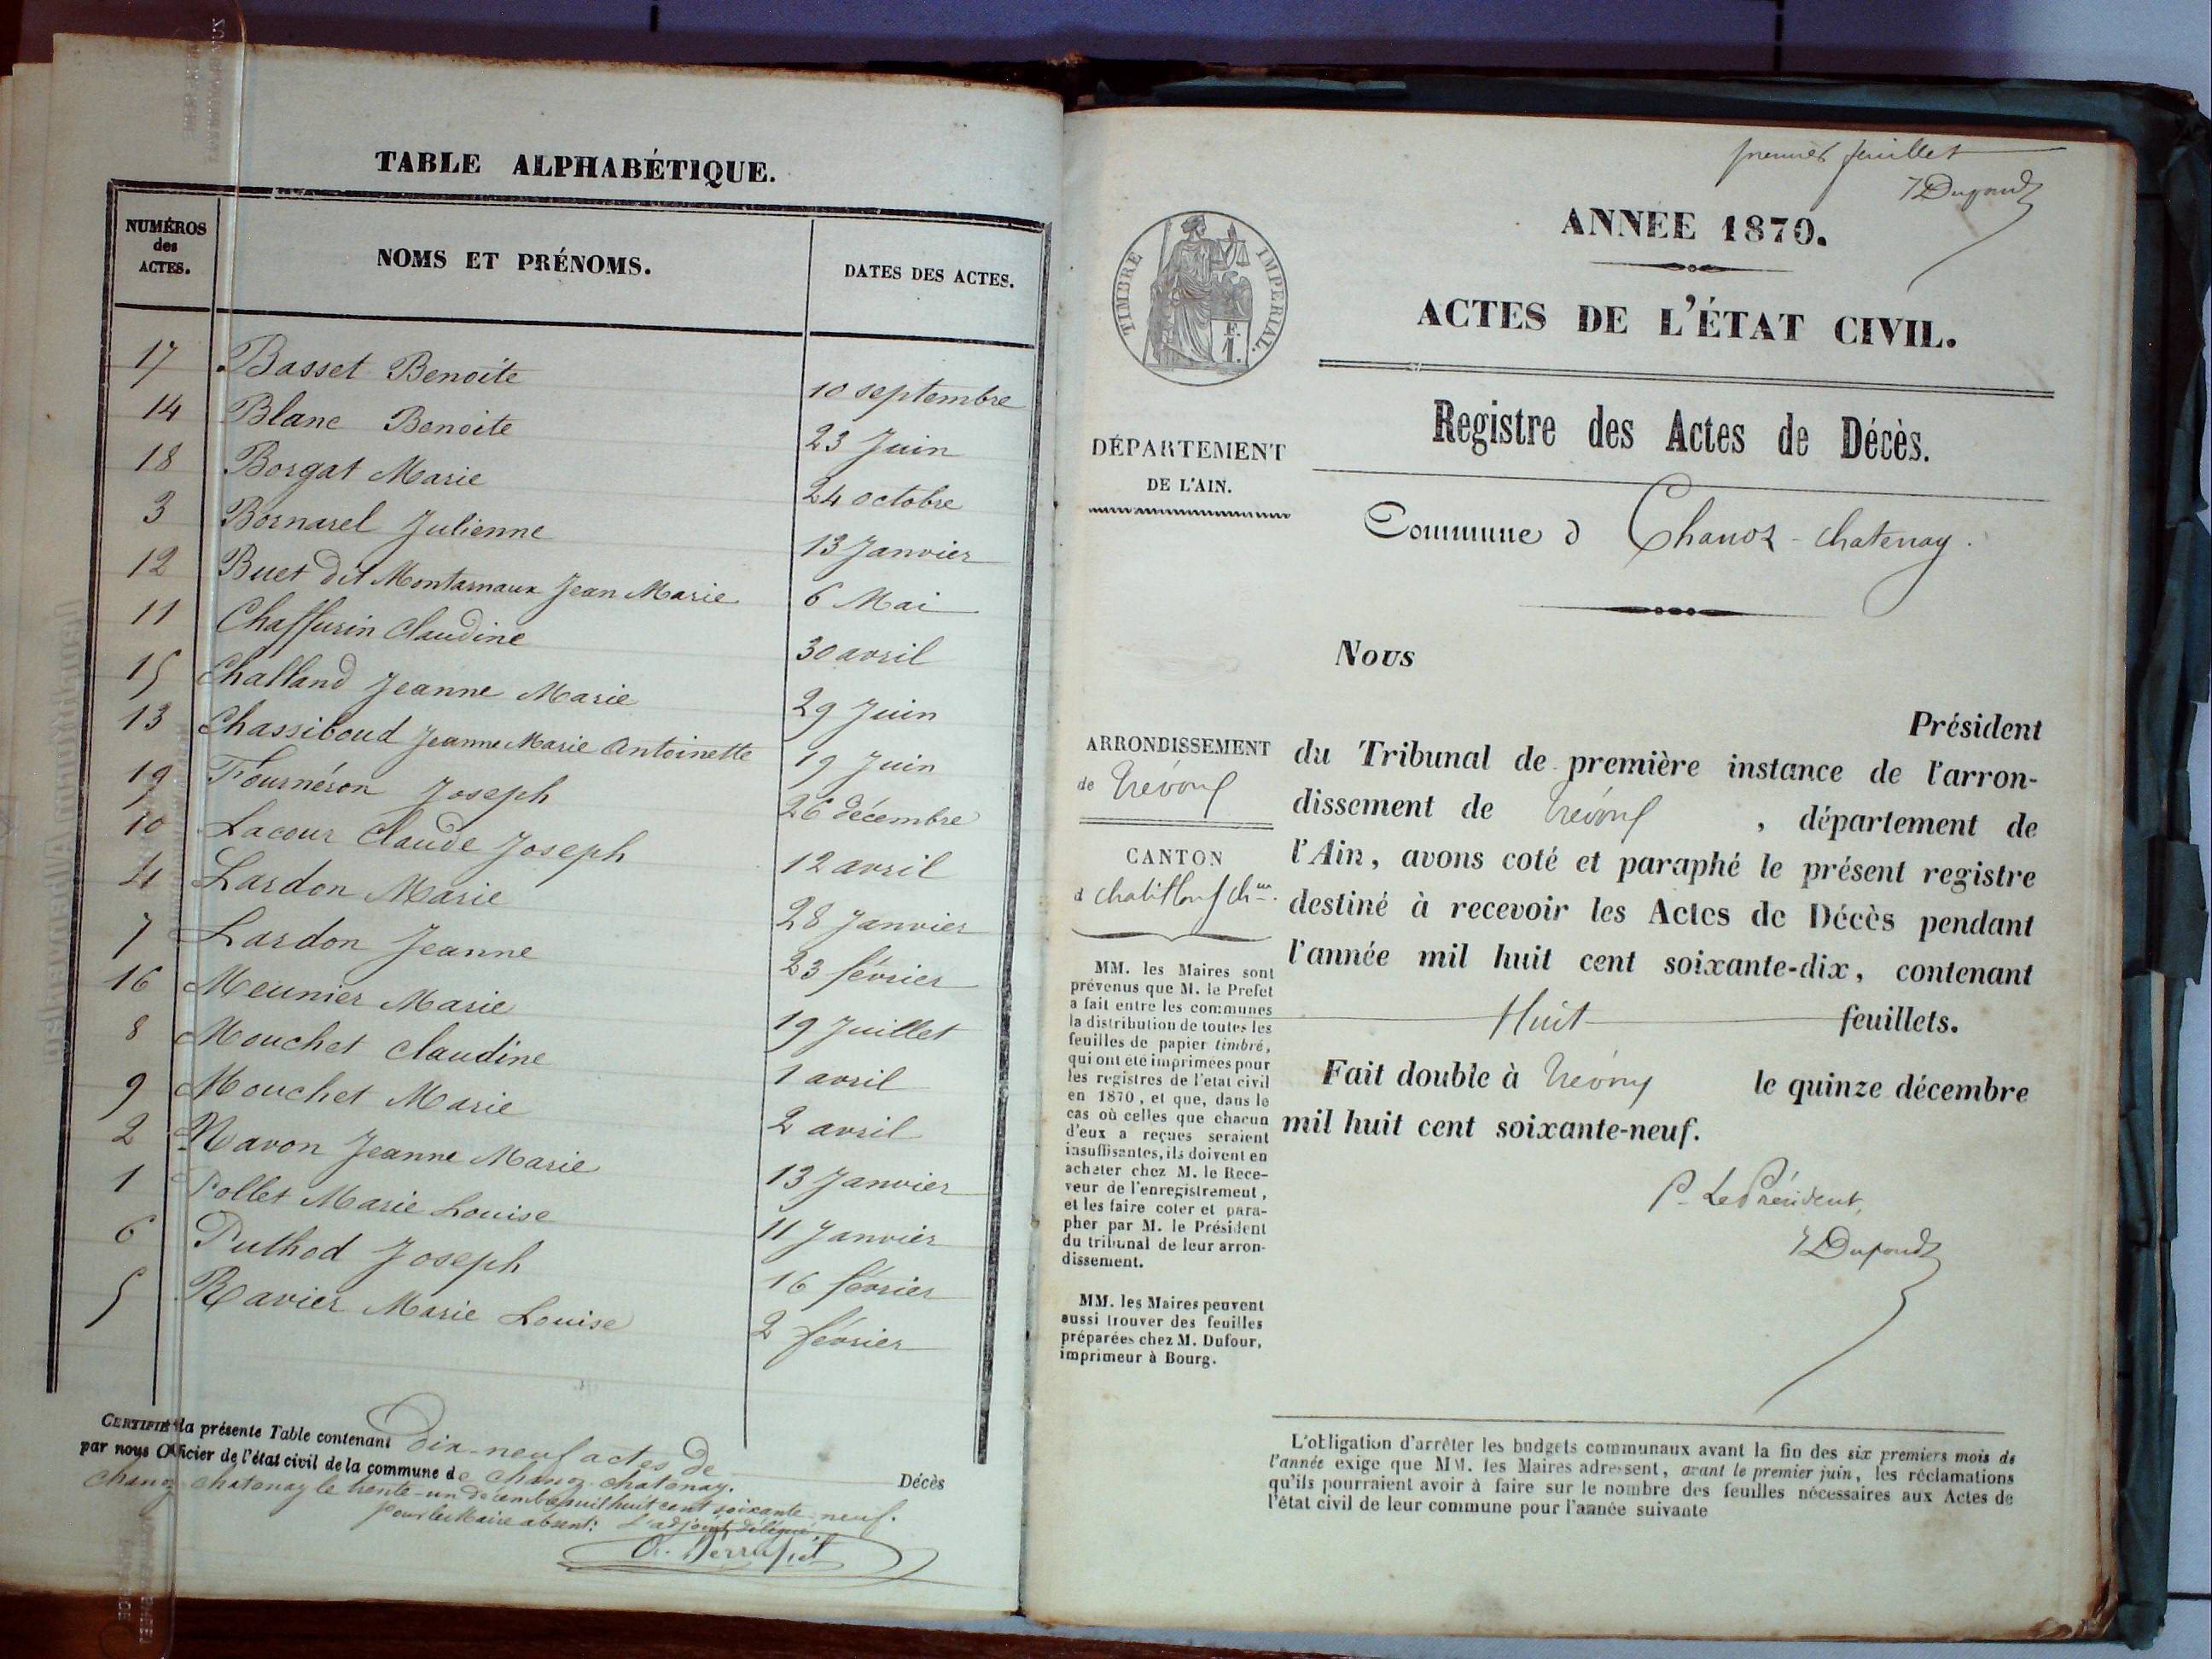 TABLE ALPHABÉTIQUE.
NUMÉROS des ACTES. NOMS ET PRÉNOMS. DATES DES ACTES.
17 Basset Benoite 10 septembre
14 Blanc Benoite 23 Juin
18 Borgat Marie 24 octobre
3 Bornarel Julienne 13 Janvier
12 Buet dit Montarnaux Jean Marie 6 Mai
11 Chaffurin Claudine 30 avril
15 Challand Jeanne Marie 29 Juin
13 Chassiboud Jeanne Marie Antoinette 19 Juin
19 Fournéron Joseph 26 décembre
10 Lacour Claude Joseph 12 avril
4 Lardon Marie 28 Janvier
7 Lardon Jeanne 23 février
16 Meunier Marie 19 Juillet
8 Mouchet Claudine 1 avril
9 Mouchet Marie 2 avril
2 Navon Jeanne Marie 13 Janvier
1 Pollet Marie Louise 11 Janvier
6 Puthod Joseph 16 février
5 Ravier Marie Louise 2 février
CERTIFIÉ la présente Table contenant dix-neuf actes de Décès
par nous Officier de l'état civil de la commune de Chanoz-chatenay.
Chanoz-chatenay le trente-un décembre mil huit cent soixante-neuf.
pour le Maire absent: L'adjoint délégué
premier feuillet
Dupond
ANNÉE 1870.
TIMBRE IMPÉRIAL.
F. 1.
ACTES DE L'ÉTAT CIVIL.
Registre des Actes de Décès.
DÉPARTEMENT
DE L'AIN.
Commune d Chanoz-chatenay.
Nous
Président
du Tribunal de première instance de l'arron-
dissement de Trévoux, département de
l'Ain, avons coté et paraphé le présent registre
destiné à recevoir les Actes de Décès pendant
l'année mil huit cent soixante-dix, contenant
Huit feuillets.
Fait double à Trévoux le quinze décembre
mil huit cent soixante-neuf.
P. Le Président,
Dupond
ARRONDISSEMENT
de Trévoux
CANTON
d chatillon s/ ch.ne
MM. les Maires sont
prévenus que M. le Prefet
a fait entre les communes
la distribution de toutes les
feuilles de papier timbré,
qui ont été imprimées pour
les registres de l'état civil
en 1870, et que, dans le
cas où celles que chacun
d'eux a reçues seraient
insuffisantes, ils doivent en
acheter chez M. le Rece-
veur de l'enregistrement,
et les faire coter et para-
pher par M. le Président
du tribunal de leur arron-
dissement.
MM. les Maires peuvent
aussi trouver des feuilles
préparées chez M. Dufour,
imprimeur à Bourg.
L'obligation d'arrêter les budgets communaux avant la fin des six premiers mois de
l'année exige que MM. les Maires adressent, avant le premier juin, les réclamations
qu'ils pourraient avoir à faire sur le nombre des feuilles nécessaires aux Actes de
l'état civil de leur commune pour l'année suivante